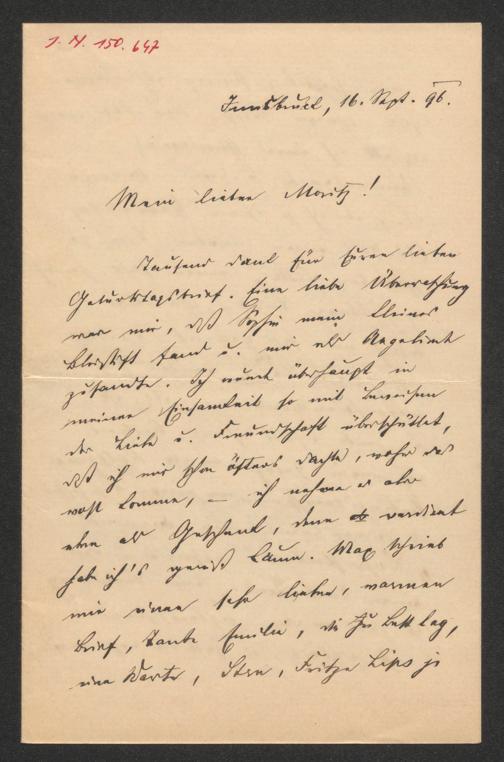 J. N. 150.647
Innsbruck, 16. Sept. 96.
Mein lieber Moritz!
Tausend Dank für Euren lieben
Geburtstagsbrief. Eine liebe Überraschung
war mir, daß Sophie mein kleines
Bleistift fand u. mir als Angebinde
zusandte. Ich wurde überhaupt in
meiner Einsamkeit so mit Beweisen
der Liebe u. Freundschaft überschüttet,
daß ich mir schon öfters dachte, woher das
wohl komme, – ich nehme es aber
eben als Geschenk, denn verdient
habe ich's gewiß kaum. Max schrieb
mir einen sehr lieben, warmen
Brief, Tante Emilie, die zu Bett lag,
eine Karte, Stern, Fritze Lips je